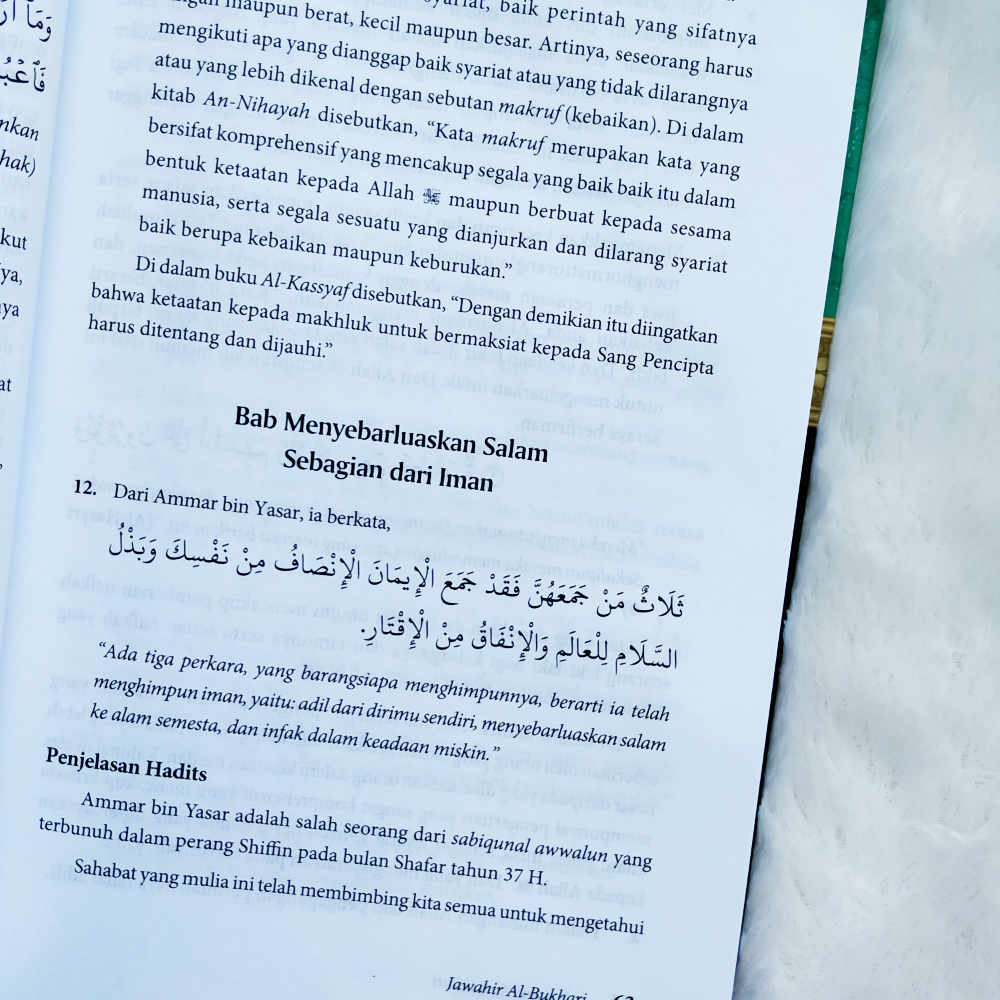 وَمَا
فَاعْبُ
nkan
hak)
kut
ya,
ya
at
maupun berat, kecil maupun besar. Artinya, seseorang harus
syariat, baik perintah yang sifatnya
mengikuti apa yang dianggap baik syariat atau yang tidak dilarangnya
atau yang lebih dikenal dengan sebutan makruf (kebaikan). Di dalam
kitab An-Nihayah disebutkan, “Kata makruf merupakan kata yang
bersifat komprehensif yang mencakup segala yang baik baik itu dalam
bentuk ketaatan kepada Allah ﷻ maupun berbuat kepada sesama
manusia, serta segala sesuatu yang dianjurkan dan dilarang syariat
baik berupa kebaikan maupun keburukan.”
Di dalam buku Al-Kassyaf disebutkan, “Dengan demikian itu diingatkan
bahwa ketaatan kepada makhluk untuk bermaksiat kepada Sang Pencipta
harus ditentang dan dijauhi.”
Bab Menyebarluaskan Salam
Sebagian dari Iman
12. Dari Ammar bin Yasar, ia berkata,
ثَلَاثٌ مَنْ جَمَعَهُنَّ فَقَدْ جَمَعَ الْإِيمَانَ الْإِنْصَافُ مِنْ نَفْسِكَ وَبَذْلُ
السَّلَامِ لِلْعَالَمِ وَالْإِنْفَاقُ مِنْ الْإِقْتَارِ.
“Ada tiga perkara, yang barangsiapa menghimpunnya, berarti ia telah
menghimpun iman, yaitu: adil dari dirimu sendiri, menyebarluaskan salam
ke alam semesta, dan infak dalam keadaan miskin.”
Penjelasan Hadits
Ammar bin Yasar adalah salah seorang dari sabiqunal awwalun yang
terbunuh dalam perang Shiffin pada bulan Shafar tahun 37 H.
Sahabat yang mulia ini telah membimbing kita semua untuk mengetahui
Jawahir Al-Bukhari